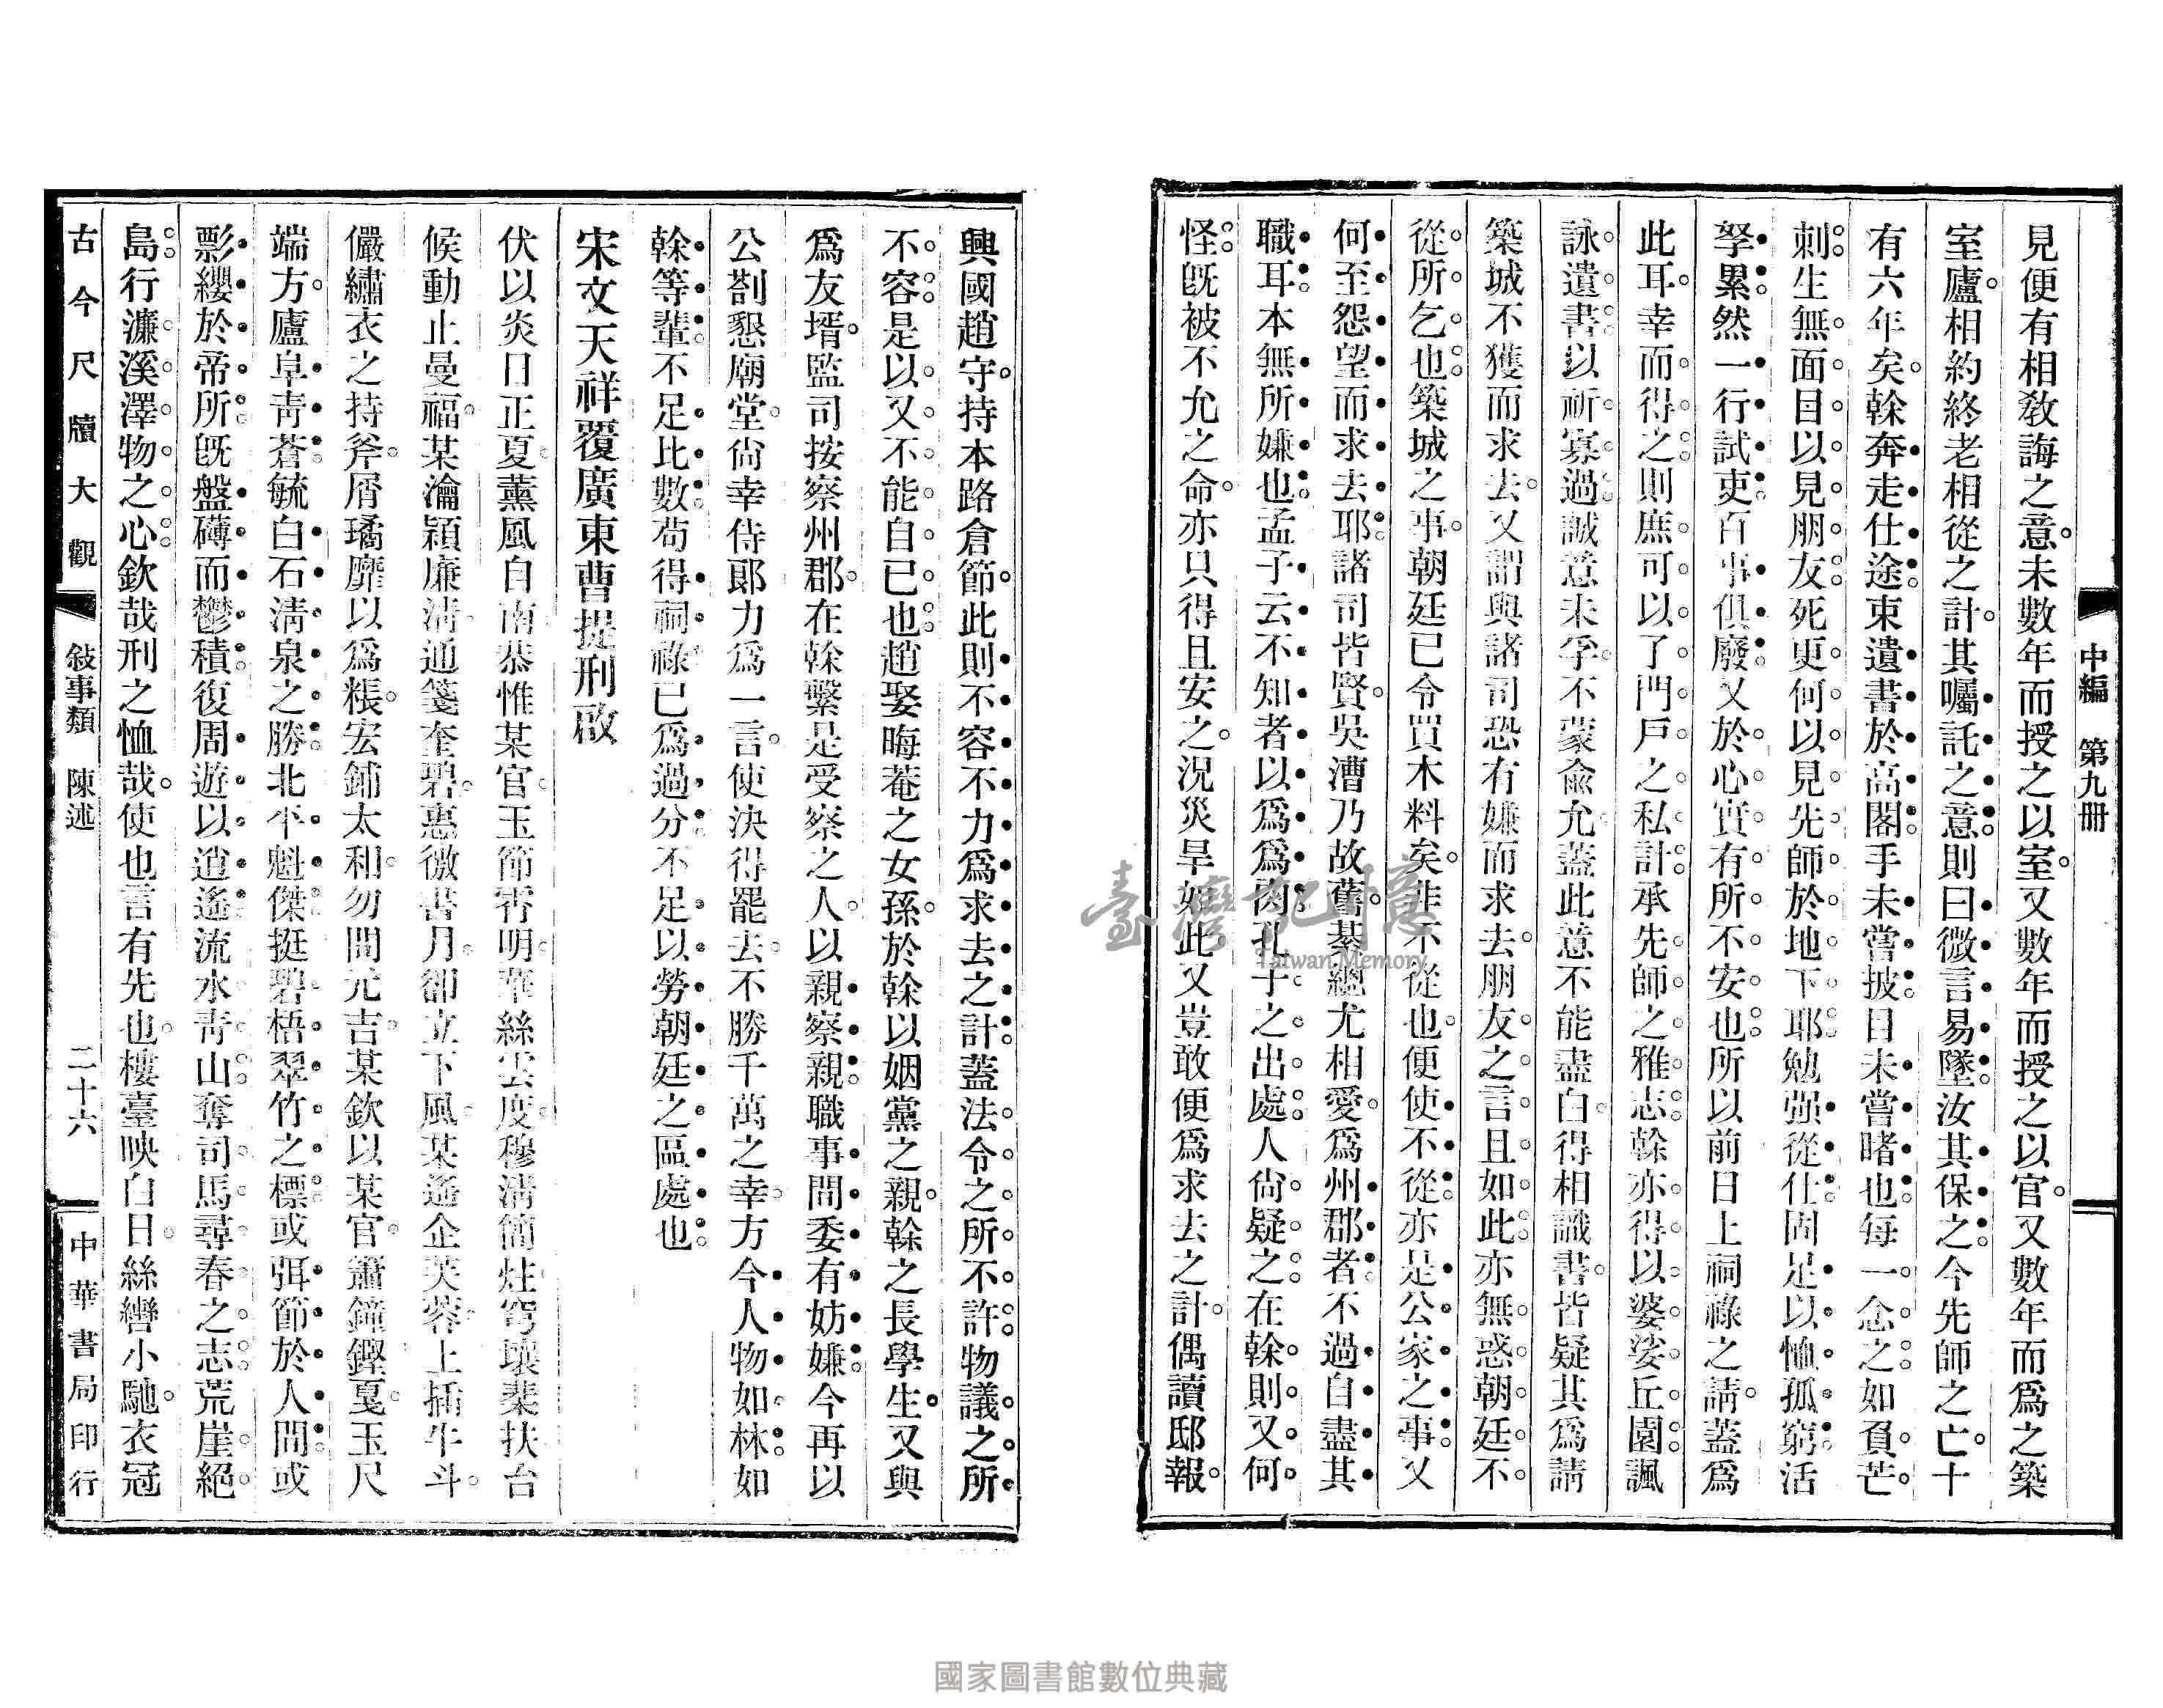 中編　第九冊
見便有相教誨之意。未數年而授之以室。又數年而授之以官。又數年而爲之築
室廬。相約終老相從之計。其囑託之意則曰微言易墜汝其保之。今先師之亡。十
有六年矣。榦奔走仕途束遺書於高閣手未嘗披目未嘗睹也每一念之如負芒
刺生無面目以見朋友死更何以見先師於地下耶勉强從仕固足以恤孤窮活
孥累然一行試吏百事俱廢又於心實有所不安也所以前日上祠祿之請。蓋爲
此耳幸而得之則庶可以了門戶之私計承先師之雅志榦亦得以婆娑丘園諷
詠遺書以祈寡過誠意未孚。不蒙俞允。蓋此意不能盡白。得相識書。皆疑其爲請
築城不獲而求去。又謂與諸司恐有嫌而求去。朋友之言且如此亦無惑朝廷不
從所乞也築城之事。朝廷已令買木料矣。非不從也。便使不從亦是公家之事又
何至怨望而求去耶諸司皆賢。吳漕乃故舊。綦總尤相愛。爲州郡者不過自盡其
職耳本無所嫌也孟子云不知者以爲爲肉孔子之出處人尙疑之在榦則又何
怪旣被不允之命。亦只得且安之。況災旱如此。又豈敢便爲求去之計。偶讀邸報。
興國趙守。持本路倉節。此則不容不力爲求去之計蓋法令之所不許物議之所
不容是以又不能自已也趙娶晦菴之女孫。於榦以姻黨之親。榦之長學生。又與
爲友壻。監司按察州郡。在榦繫是受察之人。以親察親職事間委有妨嫌今再以
公劄懇廟堂。尙幸侍郞力爲一言。使決得罷去。不勝千萬之幸。方今人物如林如
榦等輩不足比數苟得祠祿已爲過分不足以勞朝廷之區處也
宋文天祥覆廣東曹提刑啟
伏以炎日正夏。薰風自南。恭惟某官。玉節霄明。華絲雲度。穆淸簡炷。穹壤棐扶。台
候動止曼福。某瀹潁廉淸。通箋奎碧。惠微書月。卻立下風。某遙企芙蓉。上插牛斗。
儼繡衣之持斧。屑璚靡以爲粻。宏鋪太和。勿間元吉。某欽以某官。簫鐘鏗戛。玉尺
端方。廬阜靑蒼毓白石淸泉之勝北平魁傑挺碧梧翠竹之標或弭節於人間或
影纓於帝所旣盤礴而鬱積復周遊以逍遙流水靑山奪司馬尋春之志荒崖絕
島行濂溪澤物之心欽哉刑之恤哉。使也言有先也。樓臺映白日。絲轡小馳。衣冠
古今尺牘大觀　敍事類　陳述　二十六　中華書局印行
臺灣記憶
Taiwan Memory
國家圖書館數位典藏